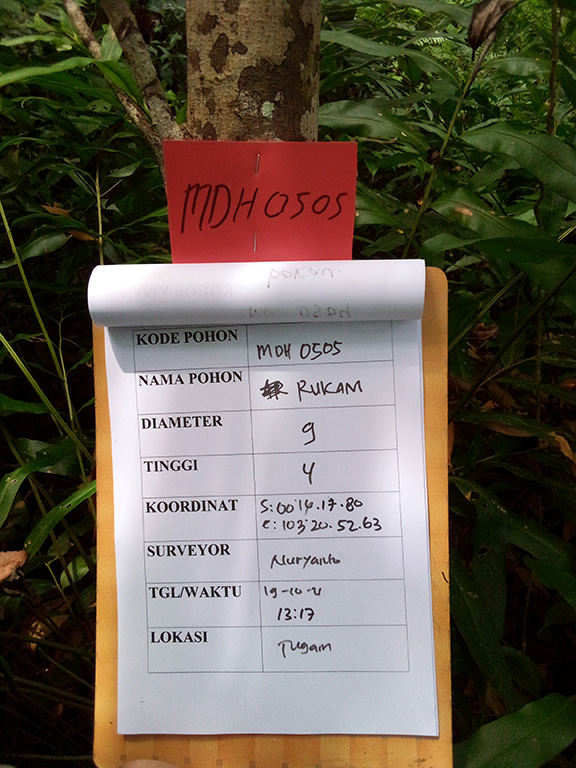 MDH 0505
KODE POHON MDH 0505
NAMA POHON RUKAM
DIAMETER 9
TINGGI 4
KOORDINAT S: 00°14.17.80
E: 103°20.52.63
SURVEYOR Nuryanto
TGL/WAKTU 19-10-21
13:17
LOKASI